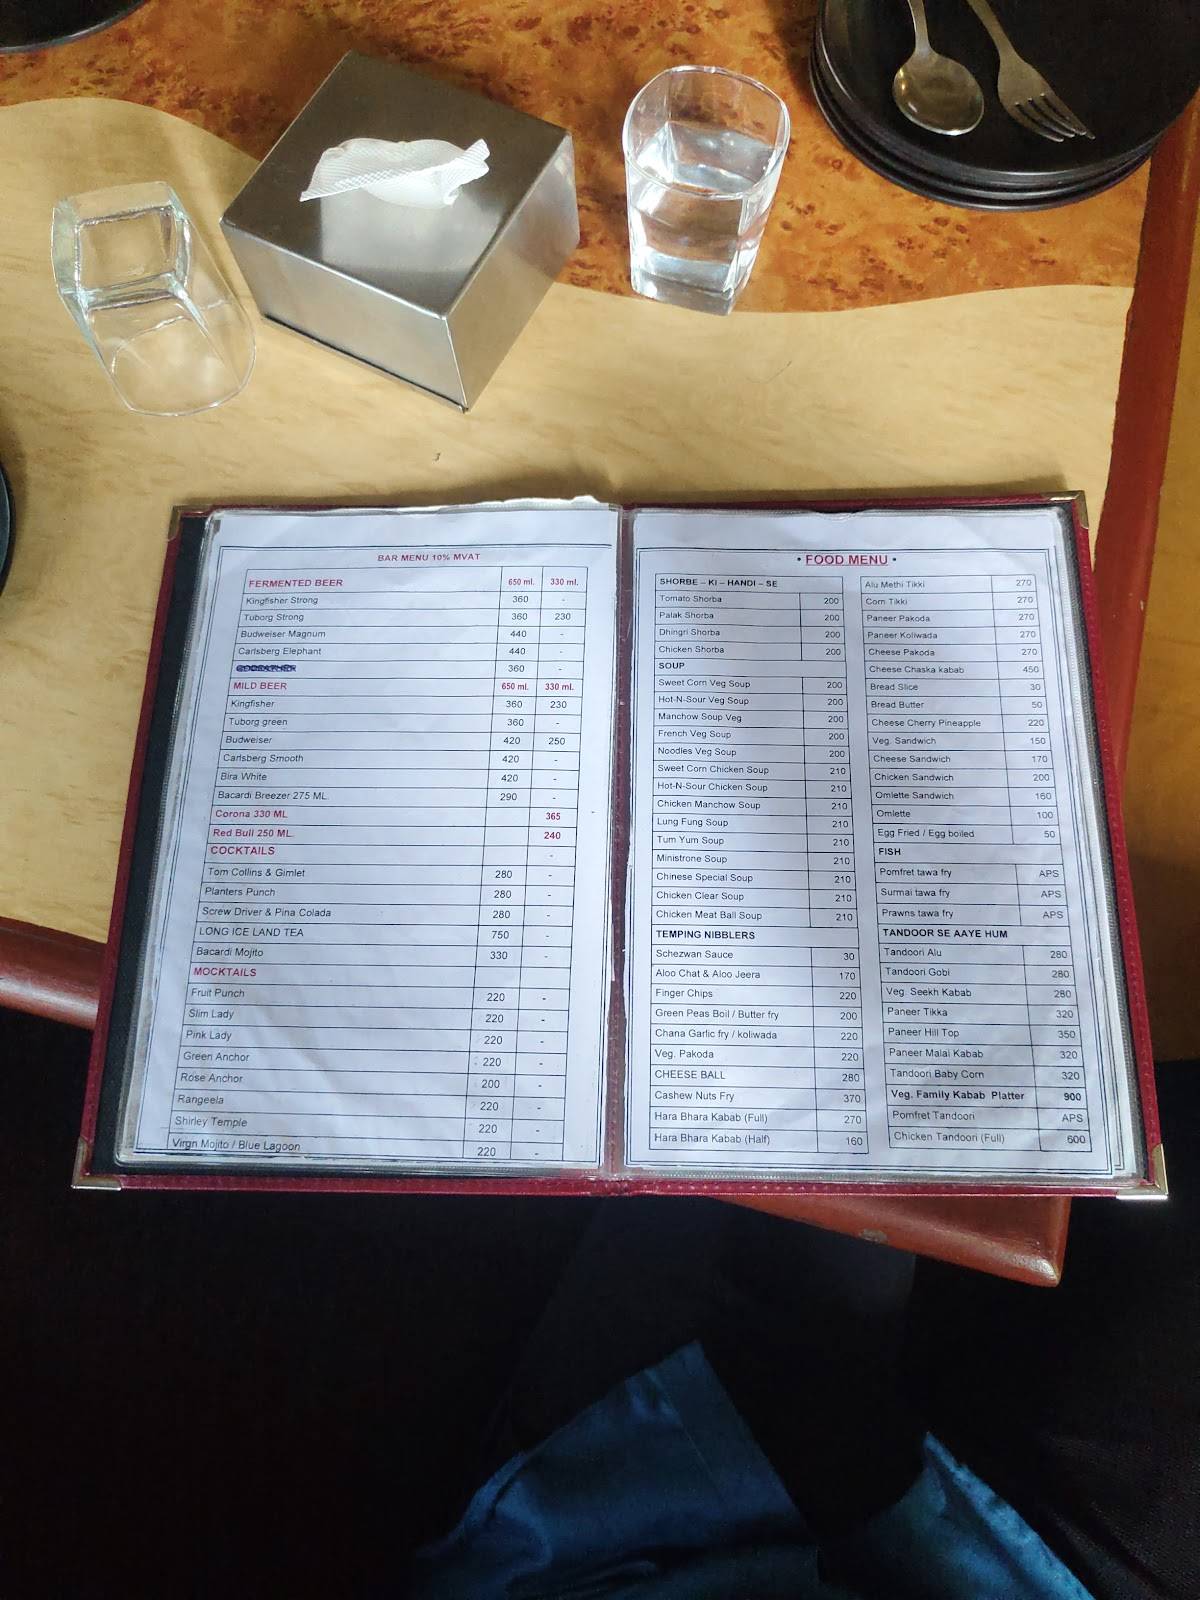 BAR MENU 10% MVAT
FERMENTED BEER 650 ml. 330 ml.
Kingfisher Strong 360 -
Tuborg Strong 360 230
Budweiser Magnum 440 -
Carlsberg Elephant 440 -
360 -
MILD BEER 650 ml. 330 ml.
Kingfisher 360 230
Tuborg green 360 -
Budweiser 420 250
Carlsberg Smooth 420 -
Bira White 420 -
Bacardi Breezer 275 ML. 290 -
Corona 330 ML 365
Red Bull 250 ML. 240
COCKTAILS -
Tom Collins & Gimlet 280 -
Planters Punch 280 -
Screw Driver & Pina Colada 280 -
LONG ICE LAND TEA 750 -
Bacardi Mojito 330 -
MOCKTAILS
Fruit Punch 220 -
Slim Lady 220 -
Pink Lady 220 -
Green Anchor 220 -
Rose Anchor 200 -
Rangeela 220 -
Shirley Temple 220 -
Virgn Mojito / Blue Lagoon 220 -
• FOOD MENU •
SHORBE – KI – HANDI – SE
Tomato Shorba 200
Palak Shorba 200
Dhingri Shorba 200
Chicken Shorba 200
SOUP
Sweet Corn Veg Soup 200
Hot-N-Sour Veg Soup 200
Manchow Soup Veg 200
French Veg Soup 200
Noodles Veg Soup 200
Sweet Corn Chicken Soup 210
Hot-N-Sour Chicken Soup 210
Chicken Manchow Soup 210
Lung Fung Soup 210
Tum Yum Soup 210
Ministrone Soup 210
Chinese Special Soup 210
Chicken Clear Soup 210
Chicken Meat Ball Soup 210
TEMPING NIBBLERS
Schezwan Sauce 30
Aloo Chat & Aloo Jeera 170
Finger Chips 220
Green Peas Boil / Butter fry 200
Chana Garlic fry / koliwada 220
Veg. Pakoda 220
CHEESE BALL 280
Cashew Nuts Fry 370
Hara Bhara Kabab (Full) 270
Hara Bhara Kabab (Half) 160
Alu Methi Tikki 270
Corn Tikki 270
Paneer Pakoda 270
Paneer Koliwada 270
Cheese Pakoda 270
Cheese Chaska kabab 450
Bread Slice 30
Bread Butter 50
Cheese Cherry Pineapple 220
Veg. Sandwich 150
Cheese Sandwich 170
Chicken Sandwich 200
Omlette Sandwich 160
Omlette 100
Egg Fried / Egg boiled 50
FISH
Pomfret tawa fry APS
Surmai tawa fry APS
Prawns tawa fry APS
TANDOOR SE AAYE HUM
Tandoori Alu 280
Tandoori Gobi 280
Veg. Seekh Kabab 280
Paneer Tikka 320
Paneer Hill Top 350
Paneer Malai Kabab 320
Tandoori Baby Corn 320
Veg. Family Kabab Platter 900
Pomfret Tandoori APS
Chicken Tandoori (Full) 600